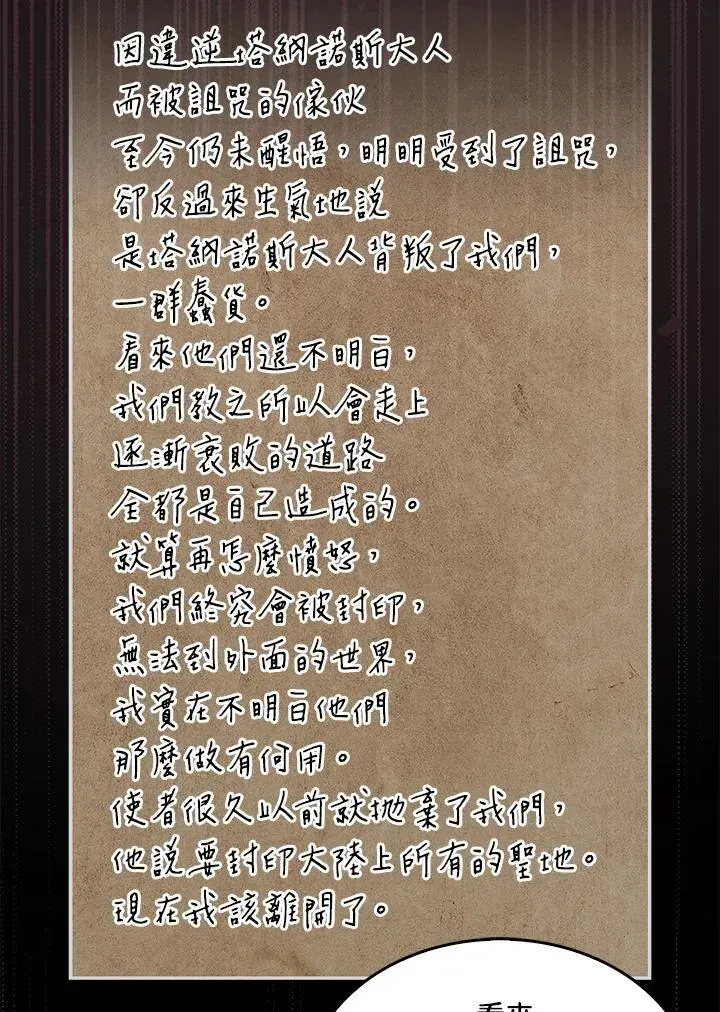 因違逆塔納諾斯大人
而被詛咒的傢伙
至今仍未醒悟，明明受到了詛咒，
卻反過來生氣地說
是塔納諾斯大人背叛了我們，
一群蠢貨。
看來他們還不明白，
我們教之所以會走上
逐漸衰敗的道路
全都是自己造成的。
就算再怎麼憤怒，
我們終究會被封印，
無法到外面的世界，
我實在不明白他們
那麼做有何用。
使者很久以前就拋棄了我們，
他說要封印大陸上所有的聖地。
現在我該離開了。
看來